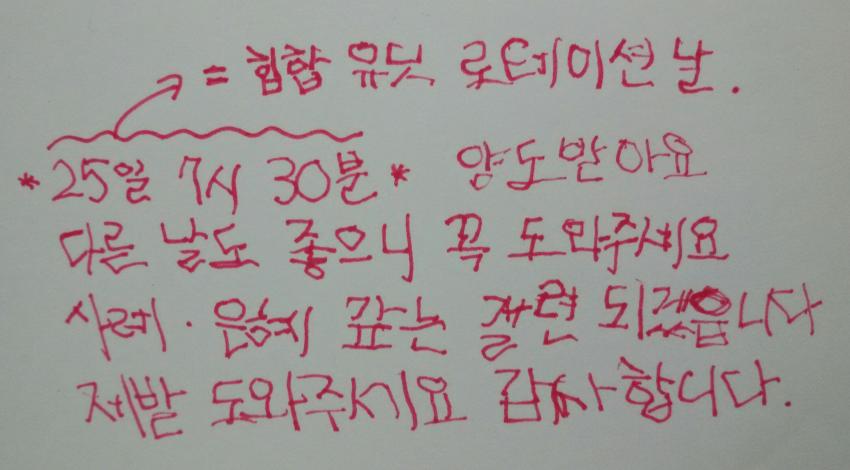 = 힙합 유닛 로테이션 날.
*25일 7시 30분* 양도받아요
다른 날도 좋으니 꼭 도와주세요
사례·은혜 갚는 걸련 되겠습니다
제발 도와주세요 감사합니다.